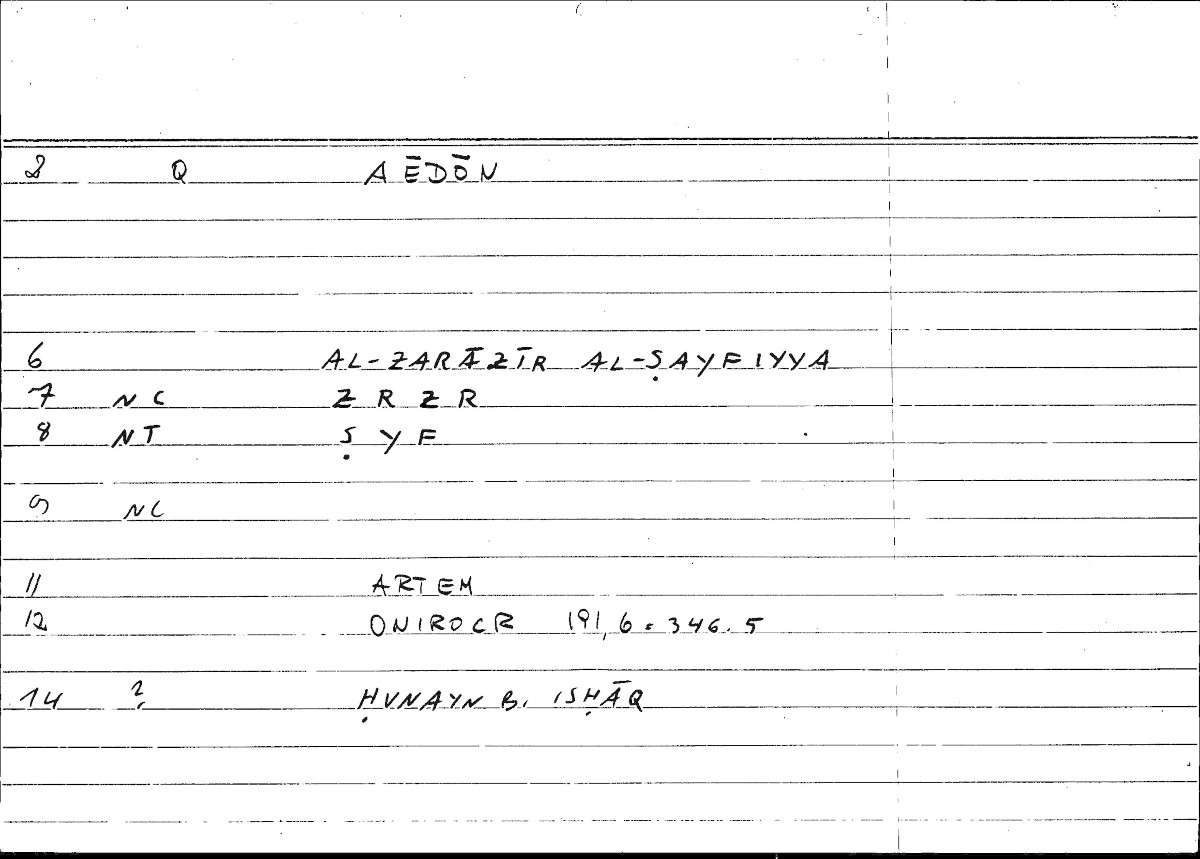 2 Q AĒDŌN
6 AL-ZARĀZĪR AL-ṢAYFIYYA
7 NC Z R Z R
8 NT Ṣ Y F
9 NC
11 ARTEM
12 ONIROCR 191,6 = 346.5
14 ? ḤUNAYN B. ISḤĀQ